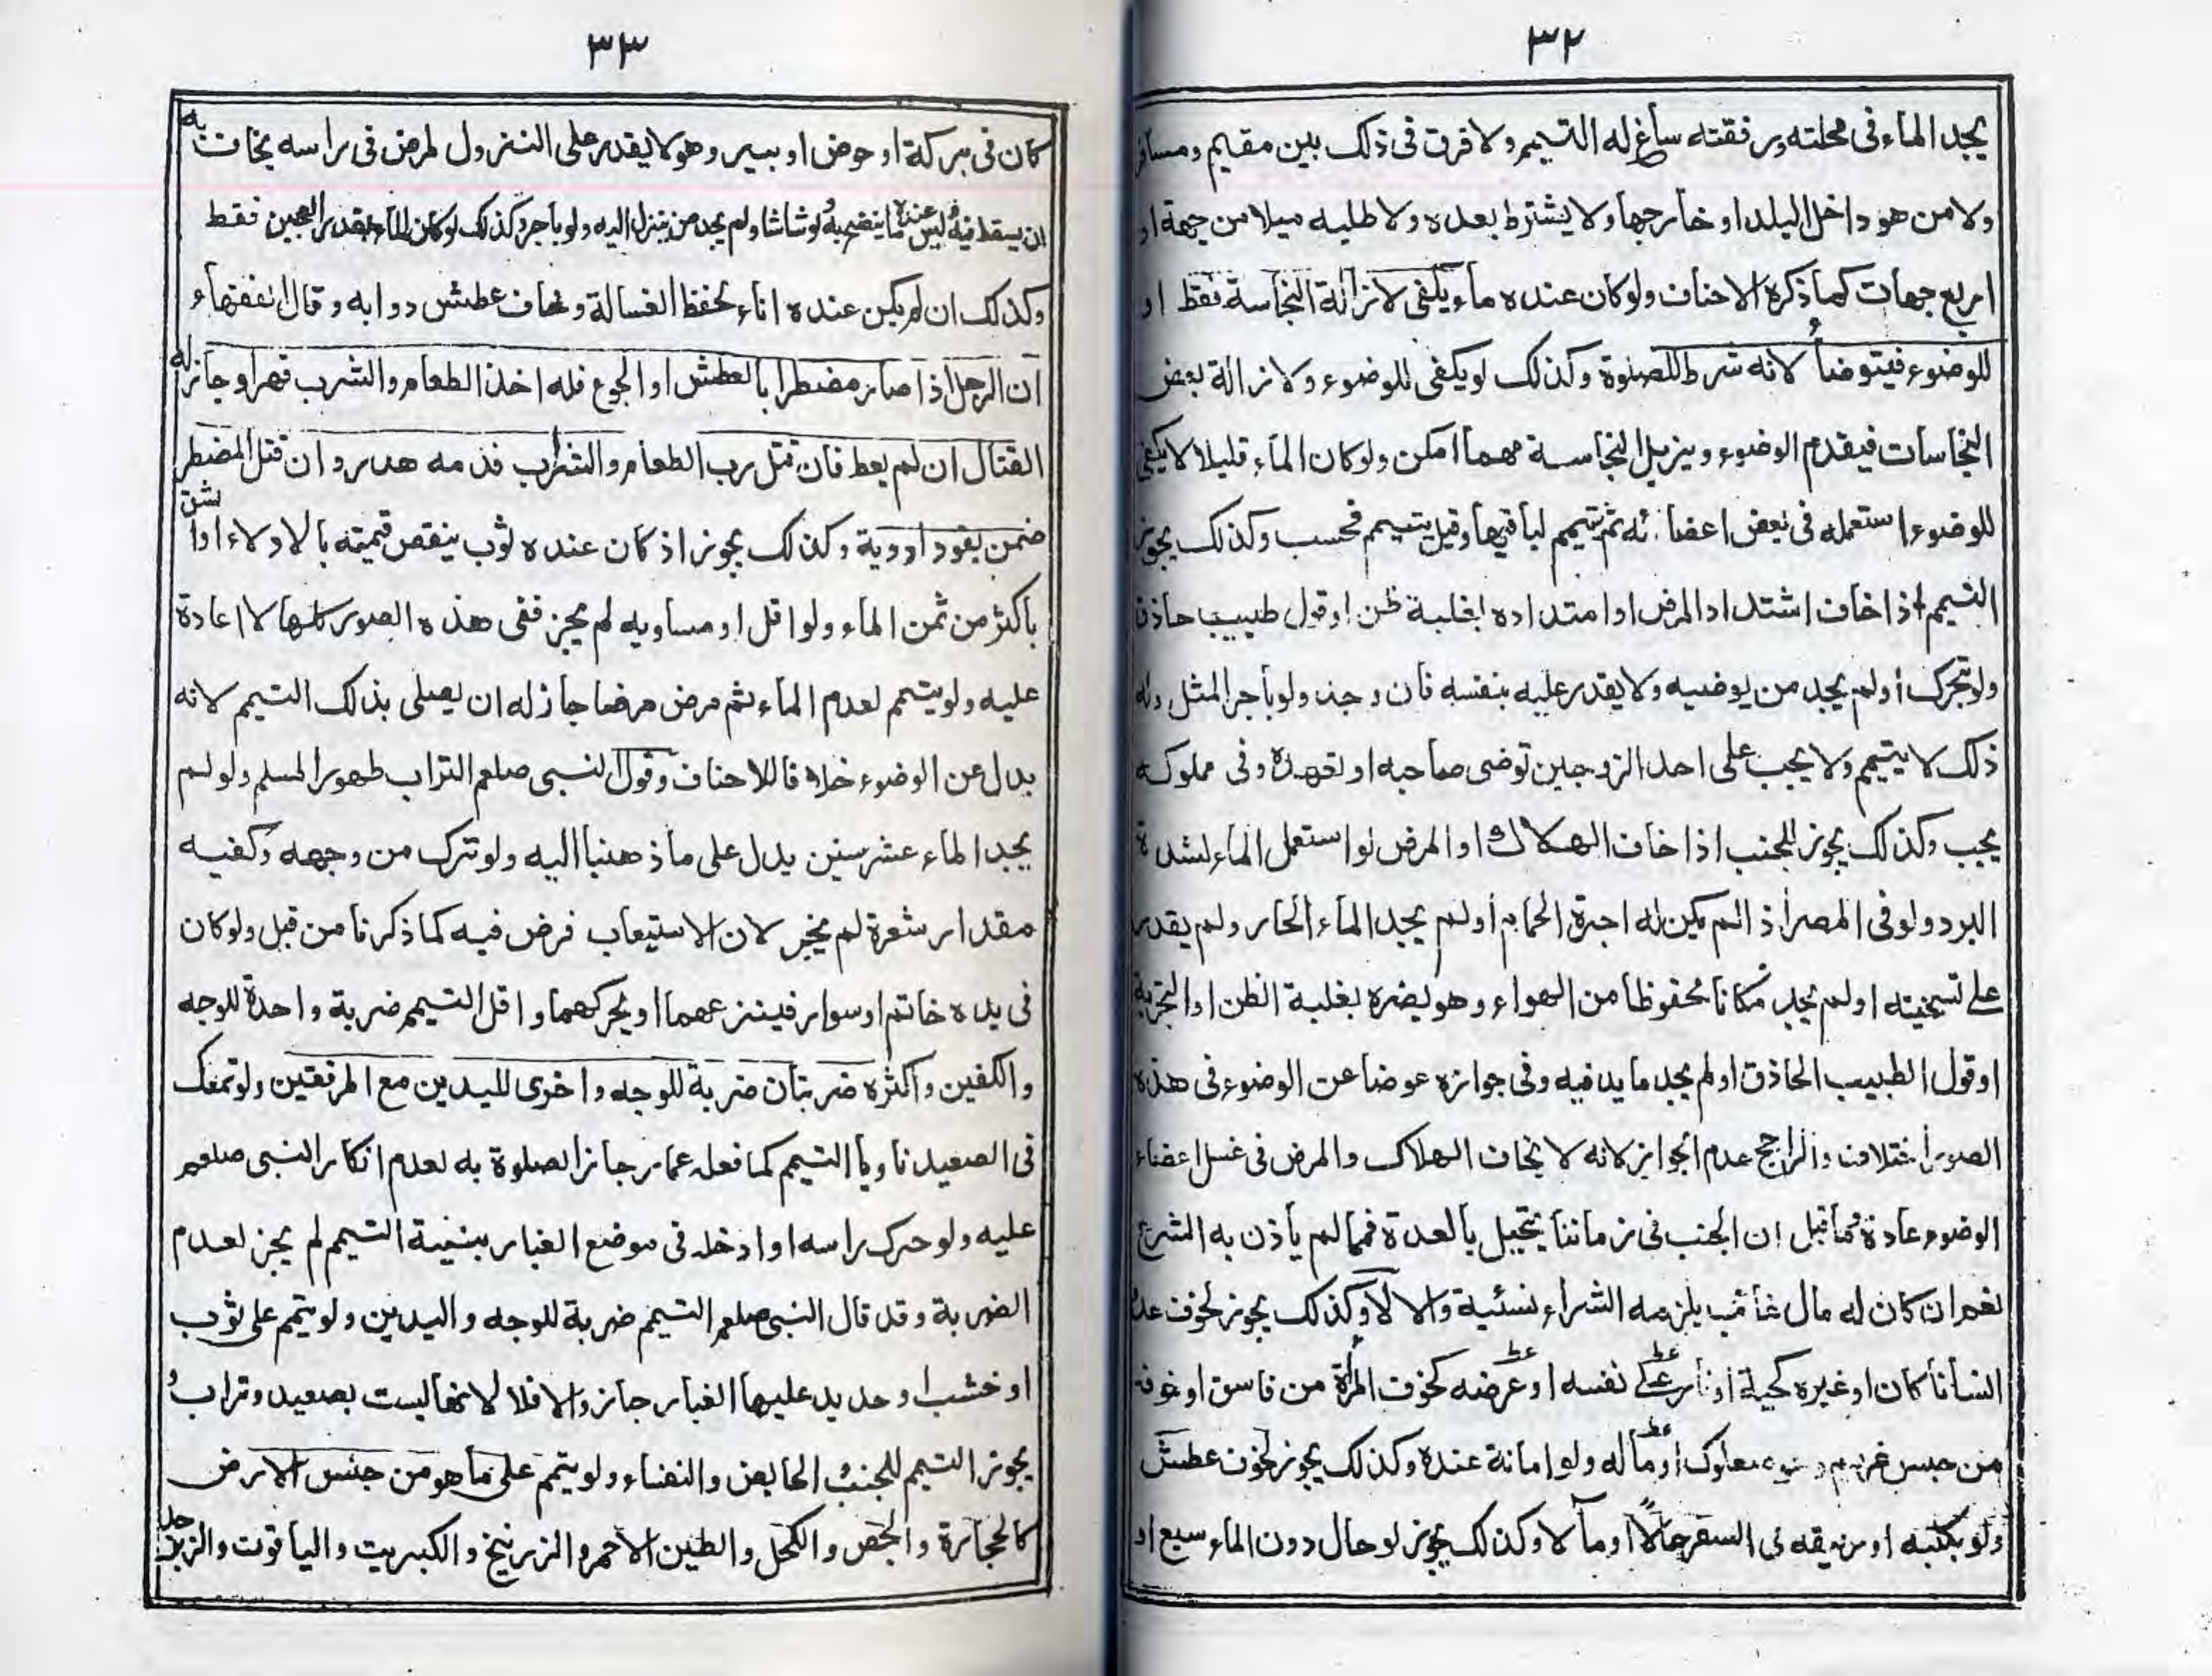 ٣٢
يجد الماء فى محلته ورفقته ساغ له التيمم ولا فرق فى ذلك بين مقيم ومسافر
ولا من هو داخل البلد او خارجها ولا يشترط بعده ولا طلبه ميلا من جهة او
اربع جهات كما ذكره الاحناف ولو كان عنده ماء يكفى لازالة النجاسة فقط او
للوضوء فيتوضأ لانه شرط للصلوة وكذلك لو يكفى للوضوء ولازالة بعض
النجاسات فيقدم الوضوء ويزيل النجاسة مهما امكن ولو كان الماء قليلا لا يكفى
للوضوء استعمله فى بعض اعضائه ثم تيمم لباقيها وقيل يتيمم فحسب وكذلك يجوز
التيمم اذا خاف اشتداد المرض او امتداده بغلبة ظن او قول طبيب حاذق
ولو تحرك او لم يجد من يوضيه ولا يقدر عليه بنفسه فان وجد ولو باجر المثل وله
ذلك لا يتيمم ولا يجب على احد الزوجين توضى صاحبه او تعهده وفى مملوكه
يجب وكذلك يجوز للجنب اذا خاف الهلاك او المرض لو استعمل الماء لشدة
البرد ولو فى المصر اذ الم يكن له اجرة الحمام او لم يجد الماء الحار ولم يقدر
على تسخينه او لم يجد مكانا محفوظا من الهواء وهو يضره بغلبة الظن او التجربة
او قول الطبيب الحاذق او لم يجد ما يدفيه وفى جوازه عوضا عن الوضوء فى هذه
الصور اختلاف والراجح عدم الجواز لانه لا يخاف الهلاك والمرض فى غسل اعضاء
الوضوء عادة فما قيل ان الجنب فى زماننا يتحيل بالعدة فمما لم يأذن به الشرع
نعم ان كان له مال غائب يلزمه الشراء نسئية والا لا وكذلك يجوز لخوف عدو
انسانا كان او غيره كحية او نار على نفسه او عرضه كخوف المرأة من فاسق او خوف
من حبس غريم مملوك او ماله ولو امانة عنده وكذلك يجوز لخوف عطش
ولو بكلبه او رفيقه فى السفر حالاً او مآلا وكذلك يجوز لو حال دون الماء سبع او
٣٣
كان فى بركة او حوض او بير وهو لا يقدر على النزول لمرض فى راسه يخاف به
ان يسقط فيه وليس عنده ما ينضح به ولو شاشا ولم يجد من ينزل اليه ولو باجر وكذلك لو كان الماء بقدر العجين فقط
وكذلك ان لم يكن عنده اناء لحفظ الغسالة وخاف عطش دوابه وقال الفقهاء
ان الرجل اذا صار مضطرا بالعطش او الجوع فله اخذ الطعام والشرب قهرا وجاز له
القتال ان لم يعط فان قتل رب الطعام والشراب فدمه هدر وان قتل المضطر
ضمن بقود او دية وكذلك يجوز اذ كان عنده ثوب ينقص قيمته بالادلاء او الشق
باكثر من ثمن الماء ولو اقل او مساويه لم يجز ففى هذه الصور كلها لا اعادة
عليه ولو يتيمم لعدم الماء ثم مرض مرضا جاز له ان يصلى بذلك التيمم لانه
بدل عن الوضوء خلافا للاحناف وقول النبى صلعم التراب طهور المسلم ولو لم
يجد الماء عشر سنين يدل على ما ذهبنا اليه ولو ترك من وجهه وكفيه
مقدار شعرة لم يجز لان الاستيعاب فرض فيه كما ذكرنا من قبل ولو كان
فى يده خاتم او سوار فينزعهما او يحركهما واقل التيمم ضربة واحدة للوجه
والكفين واكثره ضربتان ضربة للوجه واخرى لليدين مع المرفقين ولو تمعك
فى الصعيد ناويا التيمم كما فعله عمار جاز الصلوة به لعدم انكار النبى صلعم
عليه ولو حرك راسه او ادخله فى موضع الغبار بنية التيمم لم يجز لعدم
الضربة وقد قال النبى صلعم التيمم ضربة للوجه واليدين ولو يتمم على ثوب
او خشب او حديد عليها الغبار جاز والا فلا لانها ليست بصعيد وتراب و
يجوز التيمم للجنب والحايض والنفساء ولو يتمم على ما هو من جنس الارض
كالحجارة والجص والكحل والطين الاحمر والزرنيخ والكبريت والياقوت والزبرجد